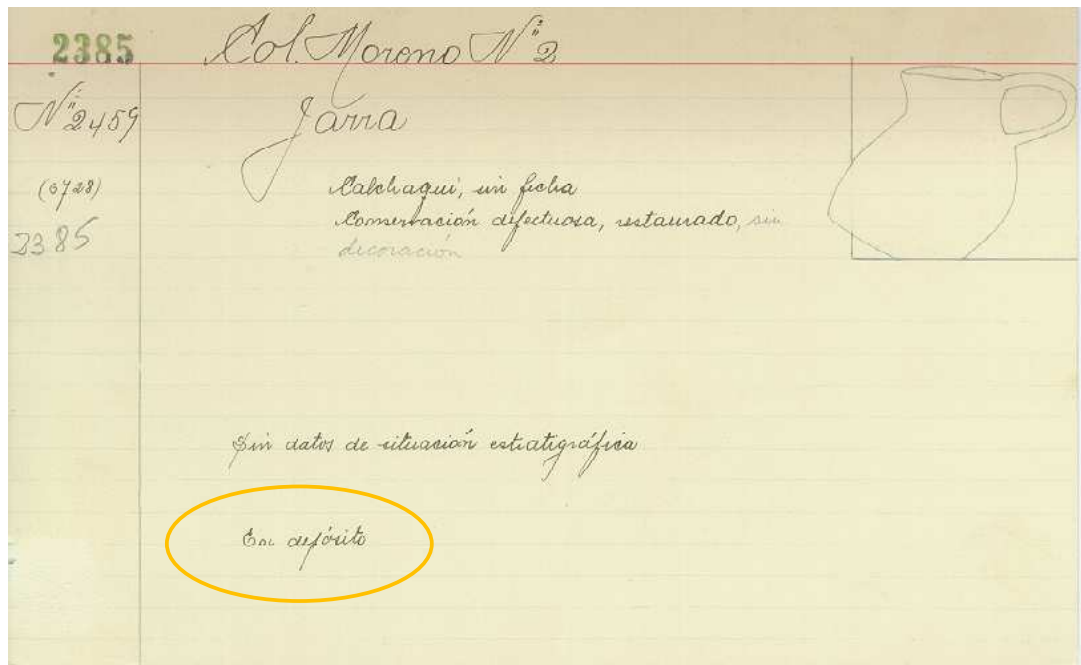 2385
Col. Moreno Nº 2
Nº 2459
Jarra
(0728)
Calchaqui, sin ficha
Conservación defectuosa, restaurado, sin
2385
decoración
Sin datos de situación estratigráfica
En depósito